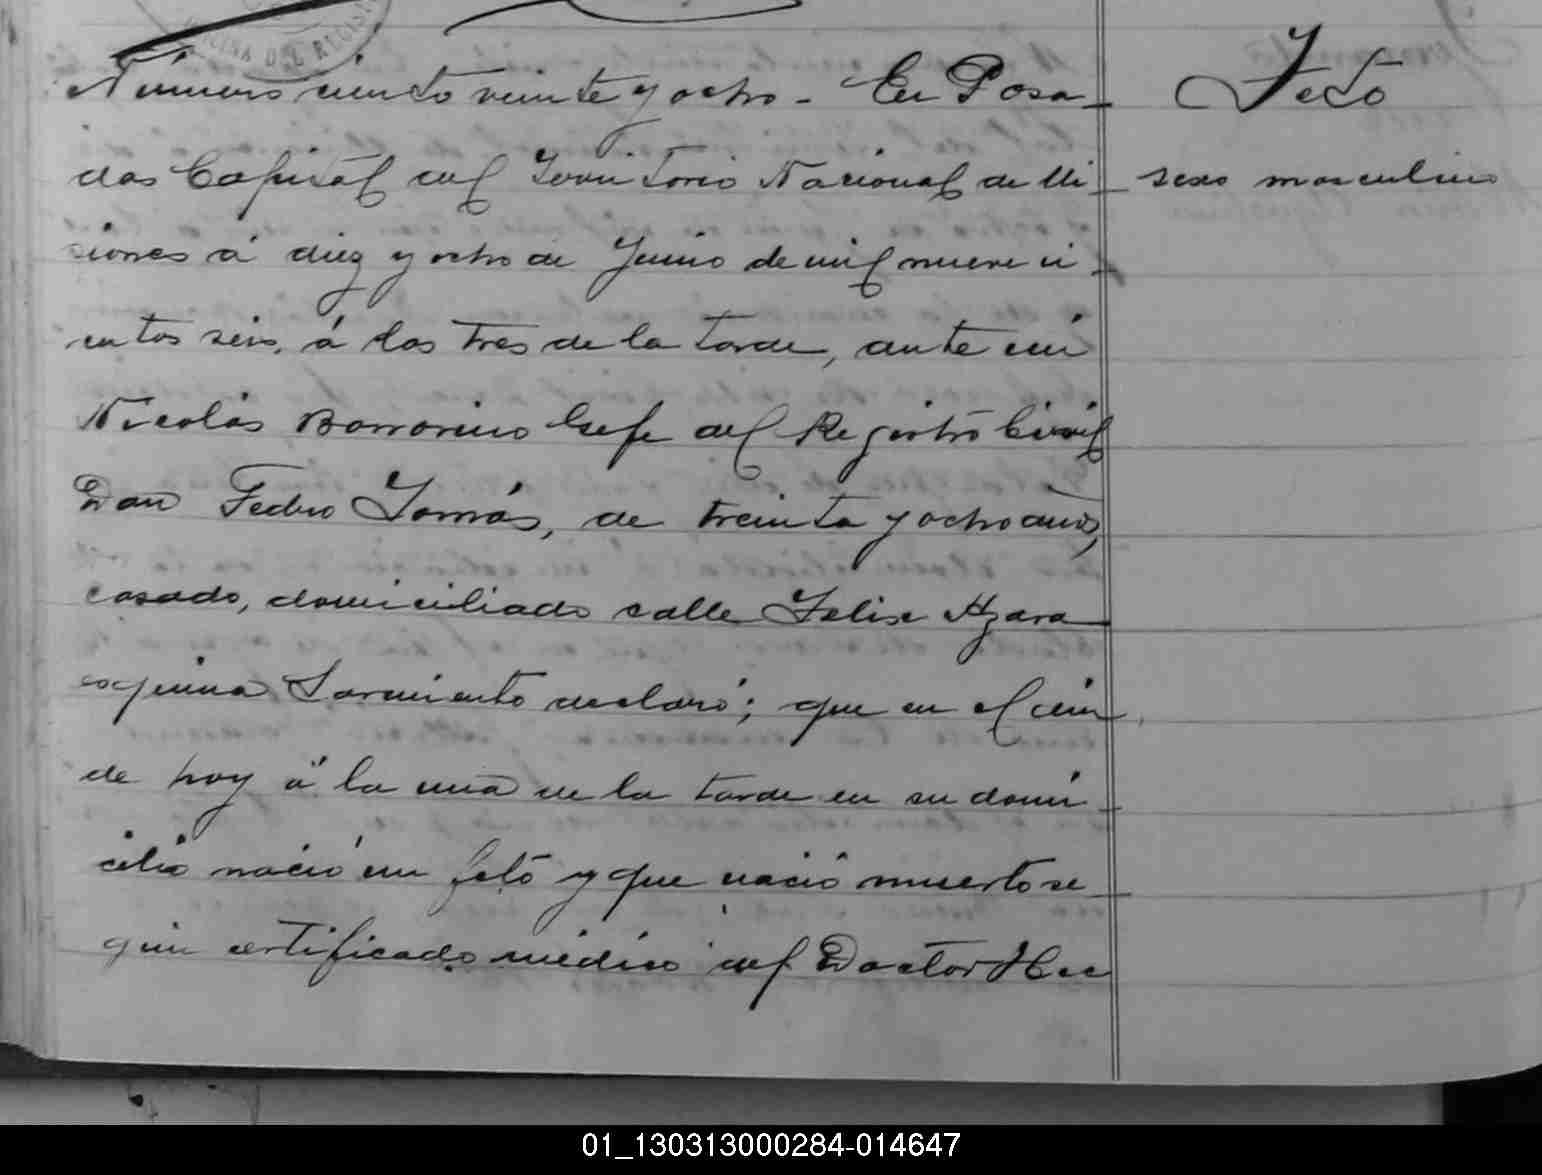 OFICINA DEL REGIS
Número ciento veinte y ocho - En Posa
das Capital del Territorio Nacional de Mi
siones á diez y ocho de Junio de mil nueve ci
entos seis, á las tres de la tarde, ante mi
Nicolás Borrorino Gefe del Registro Civil
Don Pedro Tomás, de treinta y ocho años,
casado, domiciliado calle Felix Azara
esquina Sarmiento declaró; que en el dia
de hoy á la una de la tarde en su domi
cilio nació un feto y que nació muerto se
gun certificado médico del Doctor
Feto
sexo masculino
01_130313000284-014647